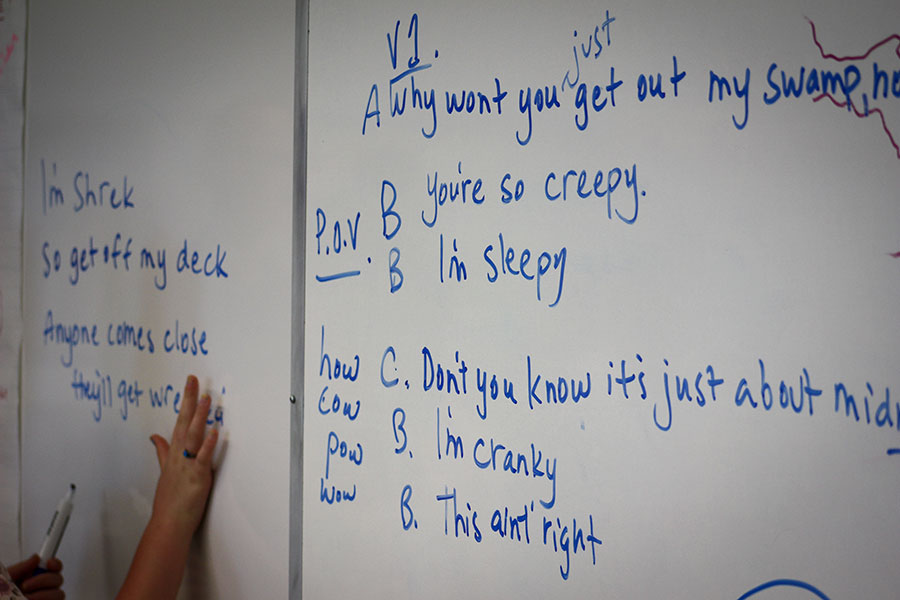 I'm Shrek
So get off my deck
Anyone comes close
they'll get
V1.
just
A Why wont you get out my swamp,
P.O.V. B You're so creepy.
B I'm sleepy
how
cow
pow
wow
C. Don't you know it's just about
B. I'm cranky
B. This aint' right